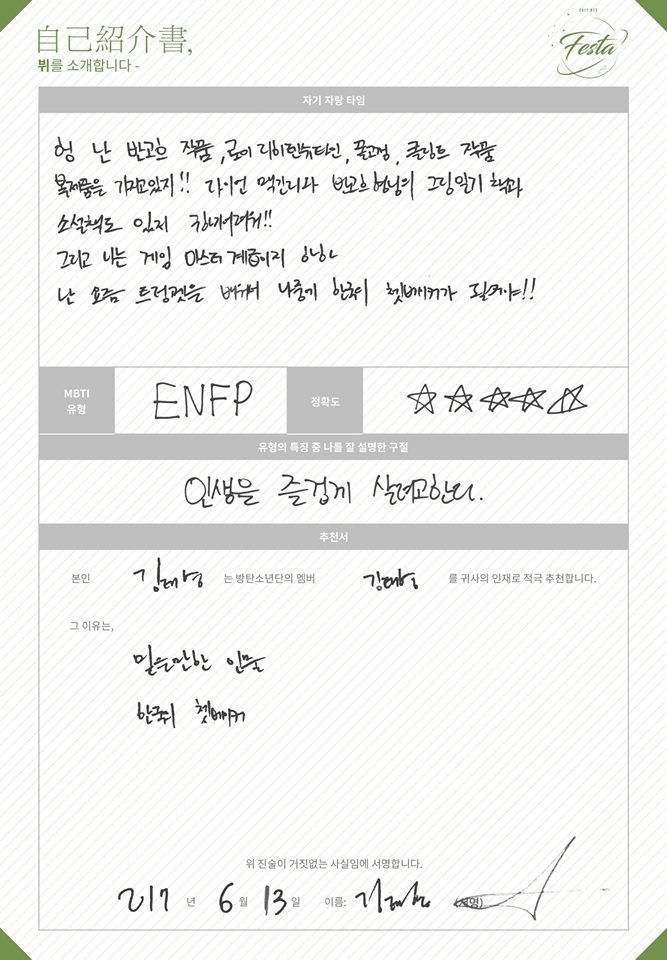 2017 BTS
Festa
自己紹介書,
뷔를 소개합니다 -
자기 자랑 타임
형 난 반고흐 작품, 로이 리히텐슈타인, 폴고갱, 클림트 작품
복제품을 가지고있지!! 라이언 맥긴리와 반고흐형님의 그림일기 책과
소설책도 있지
그리고 나는 게임 마스터 계급이지 하하하
난 요즘 트럼펫을 배워서 나중에 한국의 쳇베이커가 될꺼야!!
MBTI
유형
ENFP
정확도
☆☆☆☆☆
유형의 특징 중 나를 잘 설명한 구절
인생을 즐겁게 살려고한다.
추천서
본인 김태형 는 방탄소년단의 멤버 김태형 를 귀사의 인재로 적극 추천합니다.
그 이유는,
믿을만한 인물
한국의 쳇베이커
위 진술이 거짓없는 사실임에 서명합니다.
2017 년 6 월 13 일 이름: 김태형 (서명)